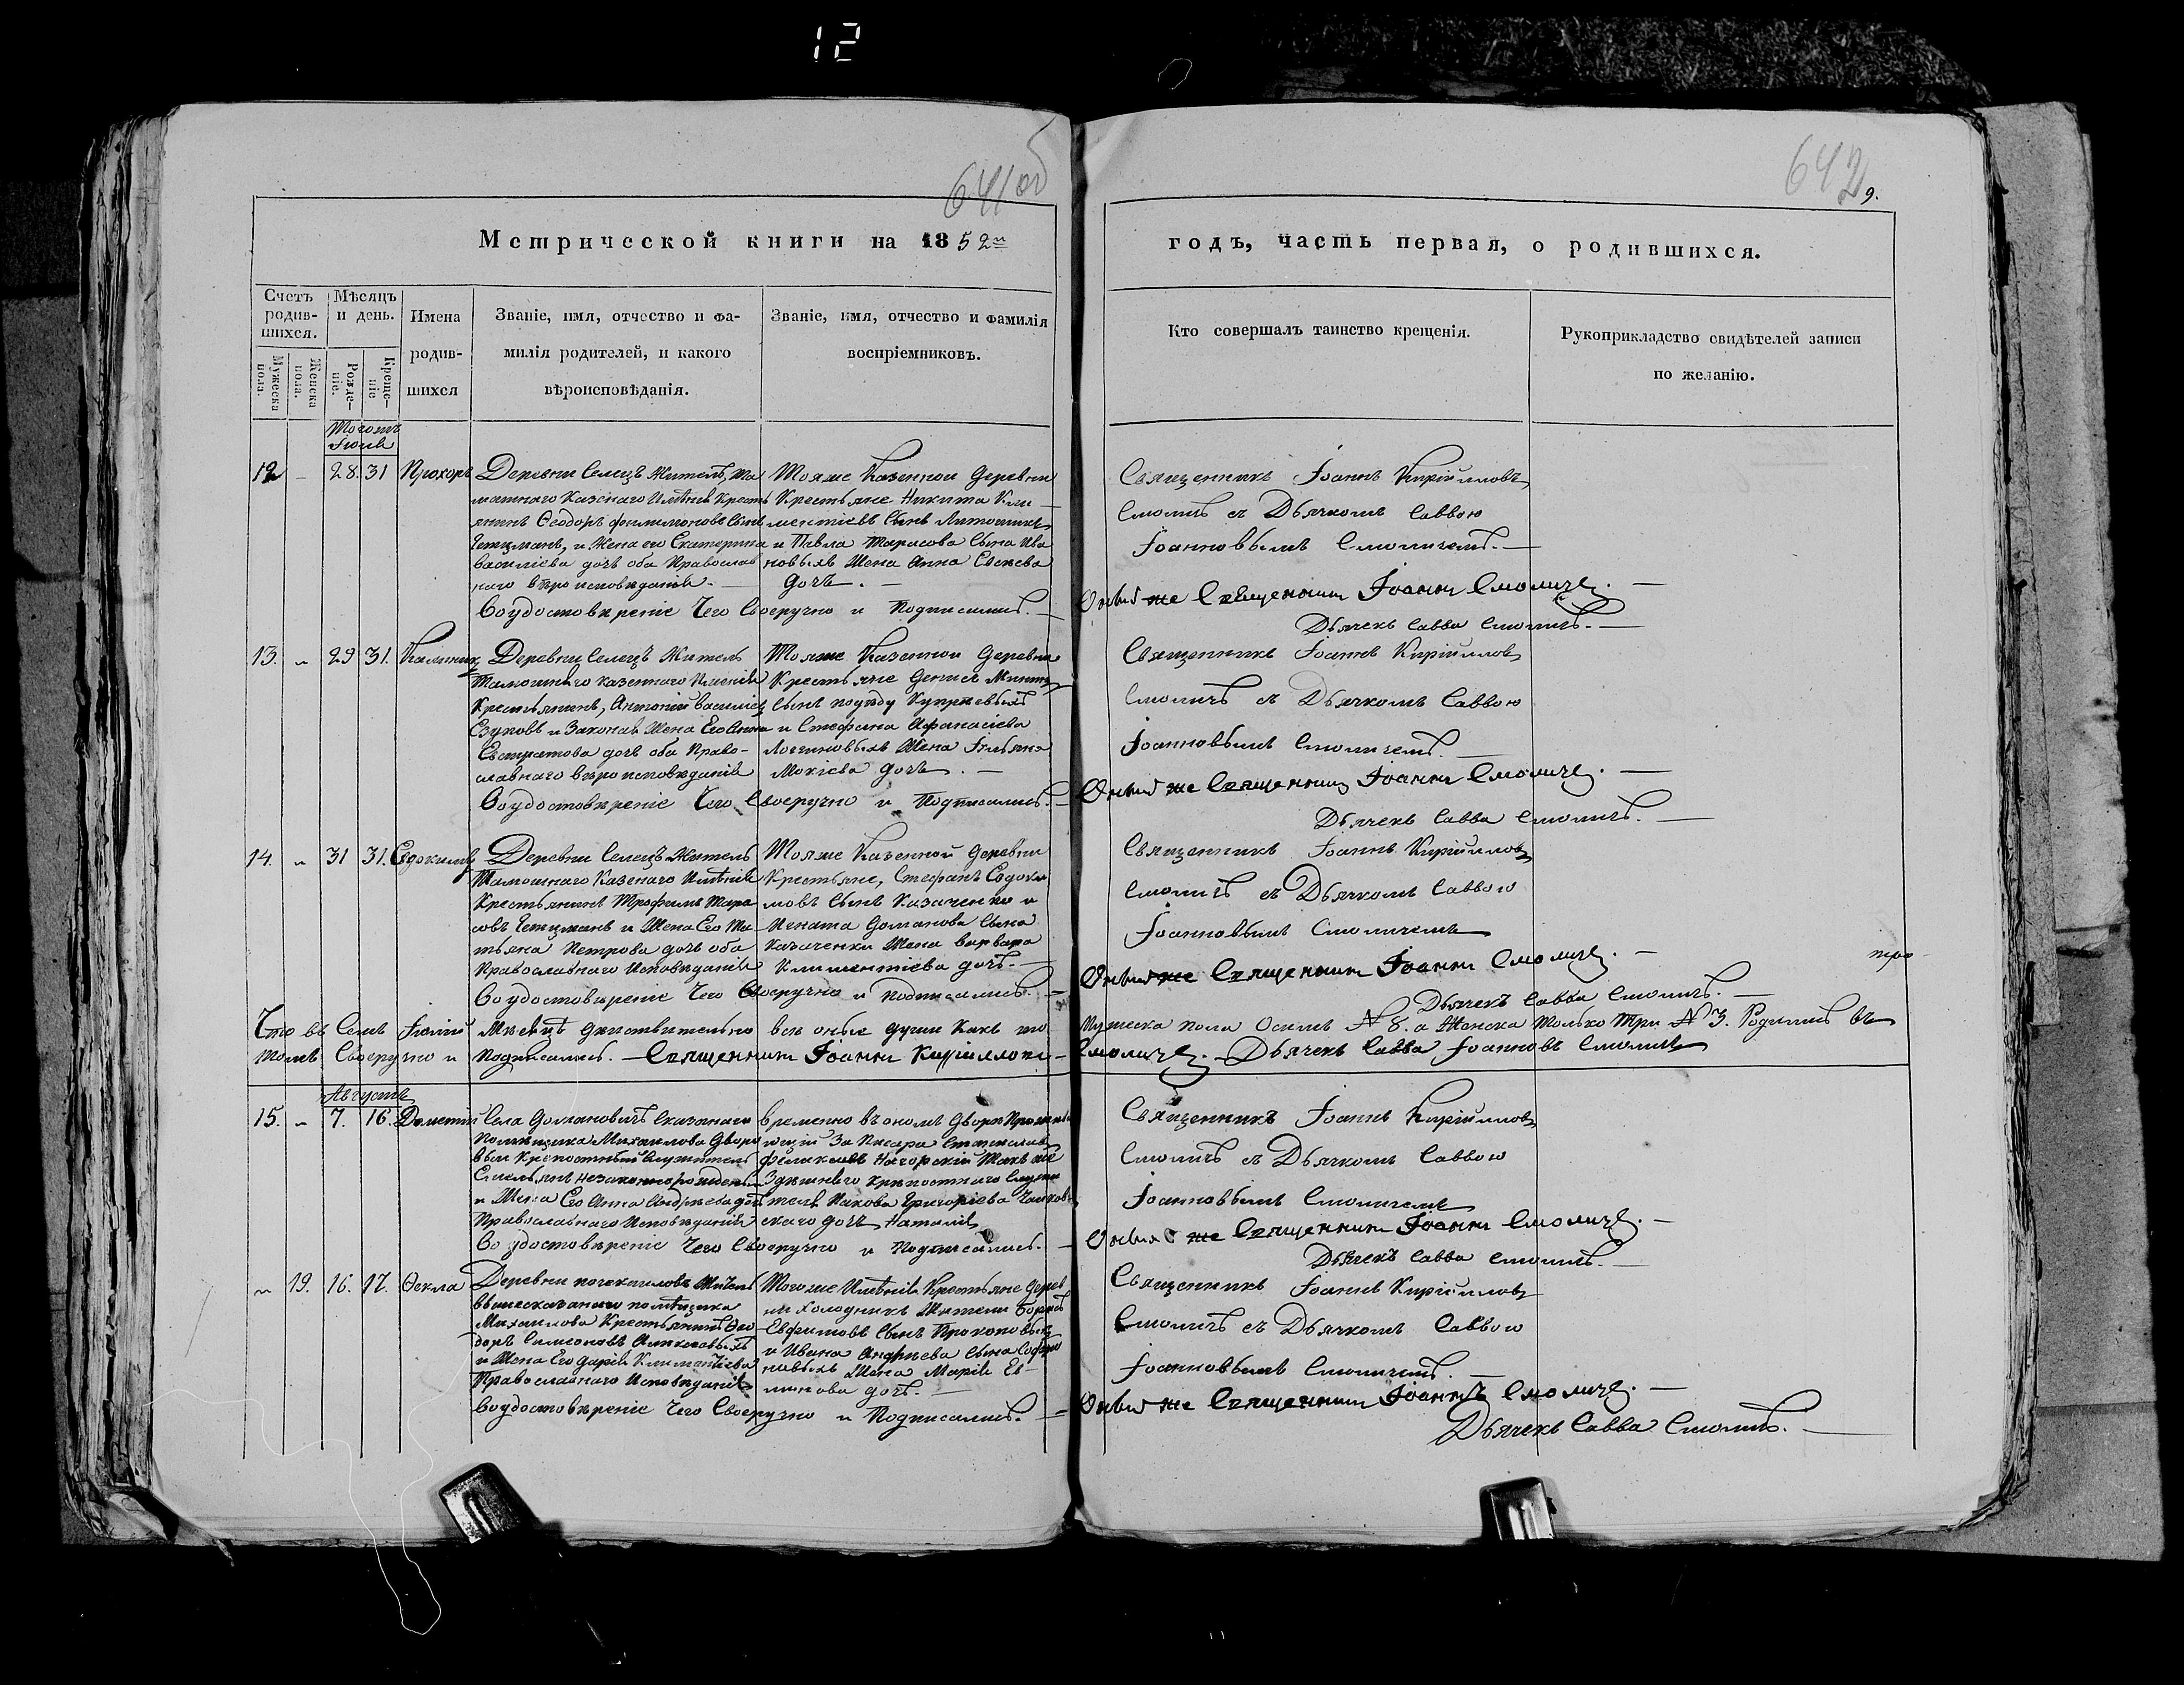 12
641 об
642
9.
Метрической книги на 1852й
годъ, часть первая, о родившихся.
Счетъ родив-шихся.
Мужеска пола.
Женска пола.
Мѣсяцъ и день.
Рожде-ніе.
Креще-ніе
Имена родив-шихся
Званіе, имя, отчество и фа-
милія родителей, и какого
вѣроисповѣданія.
Званіе, имя, отчество и фамилія
воспріемниковъ.
Кто совершалъ таинство крещенія.
Рукоприкладство свидѣтелей записи
по желанію.
Тогожъ
Іюля
12 - 28. 31 Прохоръ
Деревни Селецъ Житель, та
мошнаго Казенаго Имѣнія Крестъ
янинъ Ѳеодоръ Филимоновъ Сынъ
Гетцманъ, и Жена его Екатерина
Василіева дочь оба Православ
наго вѣроисповѣданія. -
Тояже Казенной деревни
Крестьяне Никита Кли
ментіевъ Сынъ
и Павла Тарасова Сына Ива
новыхъ Жена Анна
дочь. -
Священникъ Іоаннъ Кирилловъ
Смоличъ съ Дьячкомъ Саввою
Іоанновымъ Смоличемъ. -
Во удостовѣреніе Чего Своеручно и Подписались. - Оный же Священникъ Іоаннъ Смоличъ. -
Дьячекъ Савва Смоличъ. -
13. „ 29 31. Каллиникъ
Деревни Селецъ Житель
Тамошняго казеннаго Имѣнія
Крестьянинъ, Антоній Василіевъ
и Законная Жена Его Анна
Евстратова дочь оба Право-
славнаго вѣроисповѣданія
Тояже Казенной деревни
Крестьяне Денисъ
Сынъ
и Стефана Афанасіева
Жена
Мокіева дочь. -
Священникъ Іоаннъ Кирилловъ
Смоличъ съ Дьячкомъ Саввою
Іоанновымъ Смоличемъ. -
Во удостовѣреніе Чего Своеручно и Подписались. - Оный же Священникъ Іоаннъ Смоличъ. -
Дьячекъ Савва Смоличъ. -
14. „ 31 31. Евдокимъ
Деревни Селецъ Житель
Тамошнаго Казенаго Имѣнія
Крестьянинъ Трофимъ Тара
совъ Гетцманъ и Жена Его Та
тьяна Петрова дочь оба
Православнаго Исповѣданія
Тояже Казенной деревни
Крестьяне, Стефанъ Евдоки
мовъ Сынъ Казаченко и
Игната Доманова Сына
Казаченки Жена Варвара
Климентіева дочь. -
Священникъ Іоаннъ Кирилловъ
Смоличъ съ Дьячкомъ Саввою
Іоанновымъ Смоличемъ
Во удостовѣреніе Чего Своеручно и подписались. - Оный же Священникъ Іоаннъ Смоличъ. -
Дьячекъ Савва Смоличъ. -
Что въ Семъ Іюлѣ Мѣсяцѣ дѣйствительно всѣ оные души Какъ то Мужеска пола Осемь № 8. а Женска только Три № 3. Родились въ
томъ Своеручно и подписались. - Священникъ Іоаннъ Кирилловъ Смоличъ. - Дьячекъ Савва Іоанновъ Смоличъ
Августъ
15. „ 7. 16. Дометій
Села Домановичъ Сказанаго
Помѣщика Михаилова дворо
вый Крѣпостный Служитель
Емельянъ незаконнорожденный
и Жена Его Анна Андреева дочь
Православнаго Исповѣданія
временно въ ономъ дворѣ Прожива
ющій За Писара Станиславъ
Феликсовъ Нагорскій Такъ же
Здешняго крѣпостнаго Служи
теля Іакова Григоріева
скаго дочь Наталія
Священникъ Іоаннъ Кирилловъ
Смоличъ съ Дьячкомъ Саввою
Іоанновымъ Смоличемъ
Во удостовѣреніе Чего Своеручно и Подписались. - Оный же Священникъ Іоаннъ Смоличъ. -
Дьячекъ Савва Смоличъ. -
„ 19. 16. 17. Ѳекла
Деревни Житель
вышесказанаго помѣщика
Михаилова Крестьянинъ Ѳео
доръ Симеоновъ
и Жена Его Дарія Климентіева
Православнаго Исповѣданія
Тогоже Имѣнія Крестьяне дерев
ни Холодникъ Жители Борисъ
Сынъ Прокоповичъ
и Ивана Андреева Сына
Жена Марія
дочь. -
Священникъ Іоаннъ Кирилловъ
Смоличъ съ Дьячкомъ Саввою
Іоанновымъ Смоличемъ. -
Во удостовѣреніе Чего Своеручно и Подписались. - Оный же Священникъ Іоаннъ Смоличъ. -
Дьячекъ Савва Смоличъ. -